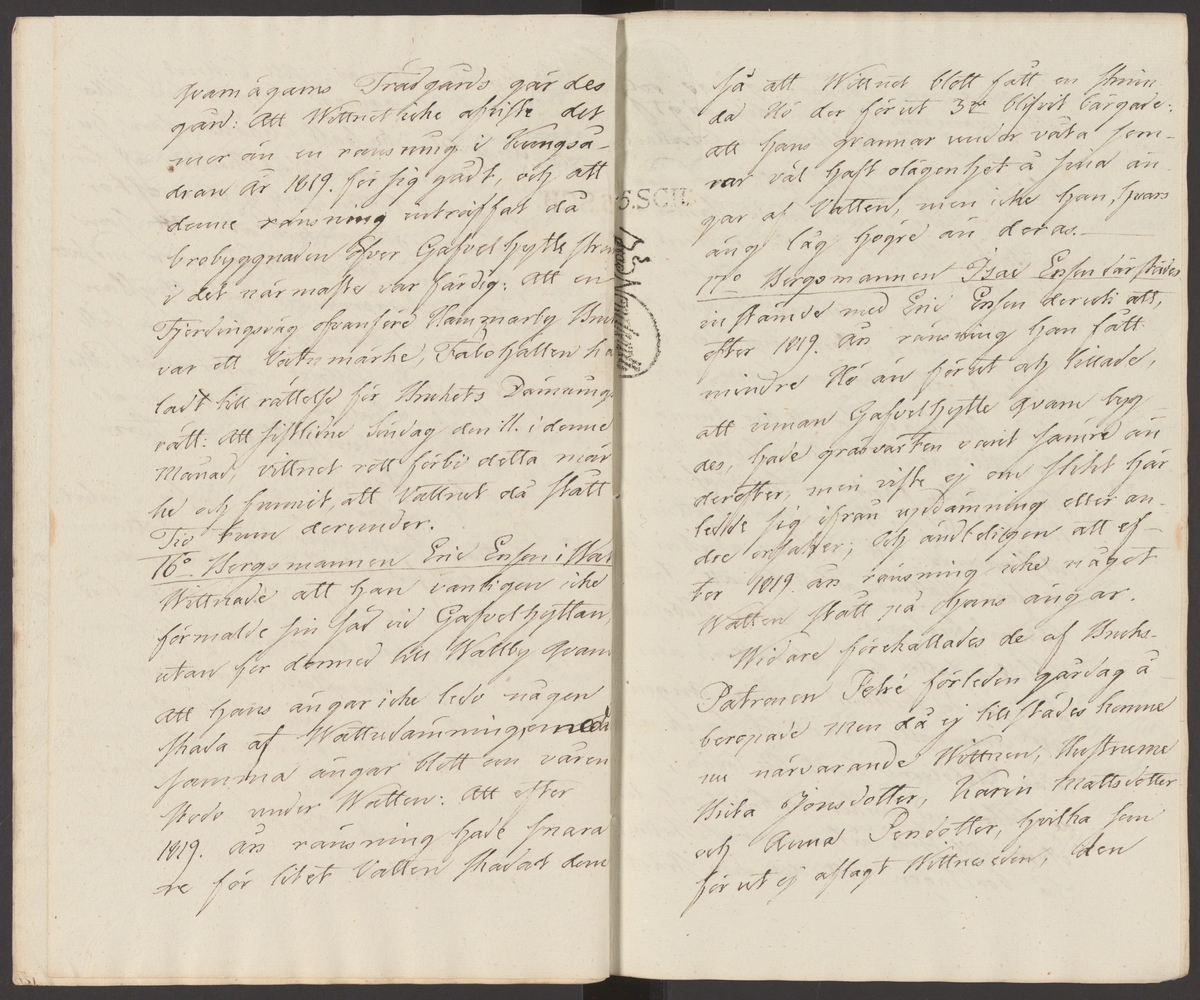 qvarnägarns Trädgårds gär des
gård: Att Wittnet icke afviste det
mer än en ränsning i Kungså-
dran år 1819. för sig gådt, och att
denne ränsning inträffat då
brobyggnaden öfver Gafvelhytte
i det närmaste var färdig: Att en
Fjerdingsväg ofvanföre Hammarby
var ett Vattumärke, Fabohallen
ladt till rättelse för Brukets Dämnings
rätt: Att sistlidne Söndag den 11. i denne
Månad, vittnet rett förbi detta mär
ke och funnit, att Vattnet då stått
Tio tum derunder.
16o. Bergsmannen Eric Ersson i
Wittnade att han vanligen icke
förmalde sin säd vid Gafvelhyttan,
utan for dermed till Wallby Qvarn
Att hans ängar icke ledo någon
skada af Wattudämningen
samma ängar blott om våren
stodo under Watten: Att efter
1819. års ränsning hade snara
re för litet Vatten skadat dem
så att Wittnet blott fått en
da Hö der förut 3ne blifvit bärgade:
att hans grannar under våta som-
rar väl haft olägenhet å sina än
gar af Vatten, men icke han, hvars
äng låg högre än deras.
17o Bergsmannen Isac Ersson därstädes
instämde med Eric Ersson deruti att,
efter 1819. års ränsning han fått
mindre Hö än förut och tillade,
att innan Gafvelhytte Qvarn byg
des, hade gräsvärten varit sämre än
derefter, men viste ej om slikt här
ledde sig ifrån uppdämning eller an-
dre orsaker; Och ändteligen att ef-
ter 1819. års ränsning icke något
Watten stått på hans ängar.
Widare förekallades de af Bruks-
Patronen Petré förleden gårdag å
beropade men då ej tillstädes komne
nu närvarande Wittnen, Hustrurne
Brita Jönsdotter, Karin Mattsdotter
och Anna Persdotter, hvilka som
förut ej aflagt Wittneseden, den
5.SCIL